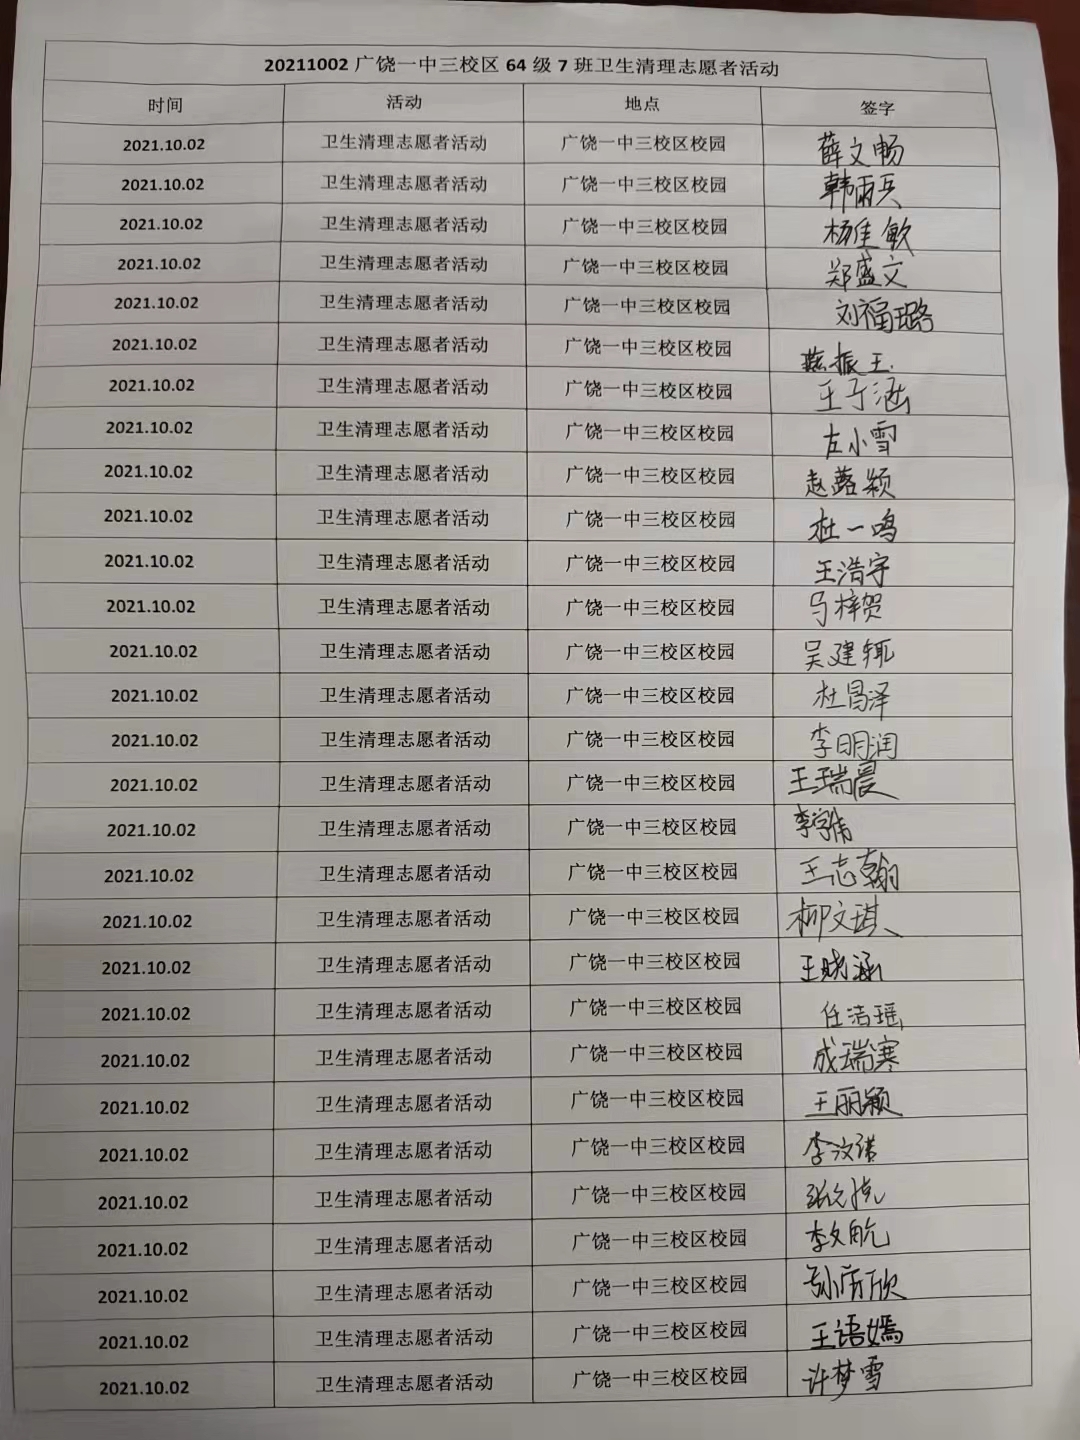 20211002 广饶一中三校区 64 级 7 班卫生清理志愿者活动
时间 活动 地点 签字
2021.10.02 卫生清理志愿者活动 广饶一中三校区校园 薛文畅
2021.10.02 卫生清理志愿者活动 广饶一中三校区校园 韩雨兵
2021.10.02 卫生清理志愿者活动 广饶一中三校区校园 杨佳敏
2021.10.02 卫生清理志愿者活动 广饶一中三校区校园 郑盛文
2021.10.02 卫生清理志愿者活动 广饶一中三校区校园 刘福璐
2021.10.02 卫生清理志愿者活动 广饶一中三校区校园 燕振王
2021.10.02 卫生清理志愿者活动 广饶一中三校区校园 王子涵
2021.10.02 卫生清理志愿者活动 广饶一中三校区校园 左小雪
2021.10.02 卫生清理志愿者活动 广饶一中三校区校园
2021.10.02 卫生清理志愿者活动 广饶一中三校区校园 杜一鸣
2021.10.02 卫生清理志愿者活动 广饶一中三校区校园 王浩宇
2021.10.02 卫生清理志愿者活动 广饶一中三校区校园 马梓贺
2021.10.02 卫生清理志愿者活动 广饶一中三校区校园
2021.10.02 卫生清理志愿者活动 广饶一中三校区校园 杜昌泽
2021.10.02 卫生清理志愿者活动 广饶一中三校区校园 李明润
2021.10.02 卫生清理志愿者活动 广饶一中三校区校园 王瑞晨
2021.10.02 卫生清理志愿者活动 广饶一中三校区校园
2021.10.02 卫生清理志愿者活动 广饶一中三校区校园 王志翰
2021.10.02 卫生清理志愿者活动 广饶一中三校区校园 柳文琪
2021.10.02 卫生清理志愿者活动 广饶一中三校区校园 王晓涵
2021.10.02 卫生清理志愿者活动 广饶一中三校区校园 任洁瑶
2021.10.02 卫生清理志愿者活动 广饶一中三校区校园 成瑞寒
2021.10.02 卫生清理志愿者活动 广饶一中三校区校园 王丽颖
2021.10.02 卫生清理志愿者活动 广饶一中三校区校园
2021.10.02 卫生清理志愿者活动 广饶一中三校区校园
2021.10.02 卫生清理志愿者活动 广饶一中三校区校园 李文航
2021.10.02 卫生清理志愿者活动 广饶一中三校区校园
2021.10.02 卫生清理志愿者活动 广饶一中三校区校园 王语嫣
2021.10.02 卫生清理志愿者活动 广饶一中三校区校园 许梦雪